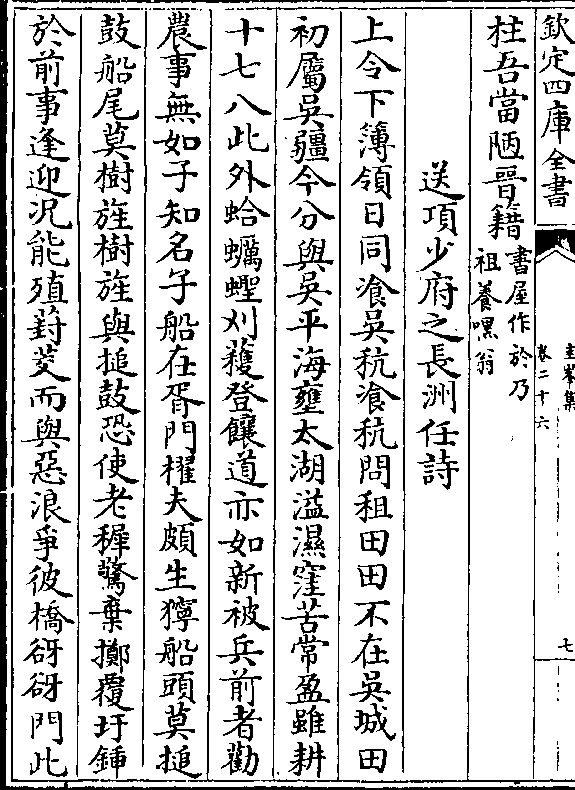 欽定四庫全書
圭峯集
卷二十六
七
柱吾當陋晉籍書屋作於乃
祖養嘿翁
送項少府之長洲任詩
上令下簿領日同飡吳秔飡秔問租田田不在吳城田
初屬吳疆今分與吳平海壅太湖溢濕窪苦常盈雖耕
十七八此外蛤蠣蟶刈穫登饟道亦如新被兵前者勸
農事無如子知名子船在胥門櫂夫頗生獰船頭莫搥
鼓船尾莫樹旌樹旌與搥鼓恐使老穉驚棄擲覆圩鍤
於前事逢迎况能殖葑茭而與惡浪爭彼橋谺谺門此